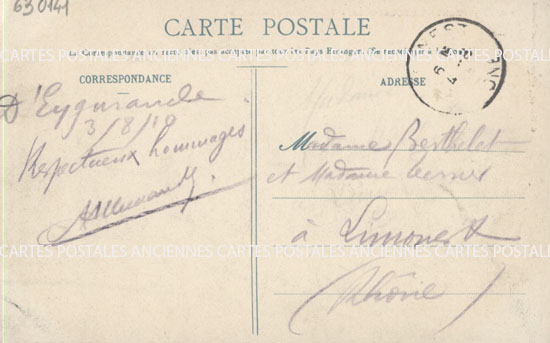 630141
CARTE POSTALE
La Correspondance au recto n'est pas acceptée par tous les Pays Etrangers. (Se renseigner à la Poste)
CORRESPONDANCE
D'Eygurande
3/8/10
Respectueux hommages
ADRESSE
Madame Berthelet
et Madame
à Limonest
(Rhône)
CARTES POSTALES ANCIENNES CARTES POSTALES ANCIENNES CARTES POSTALES ANCIENNES